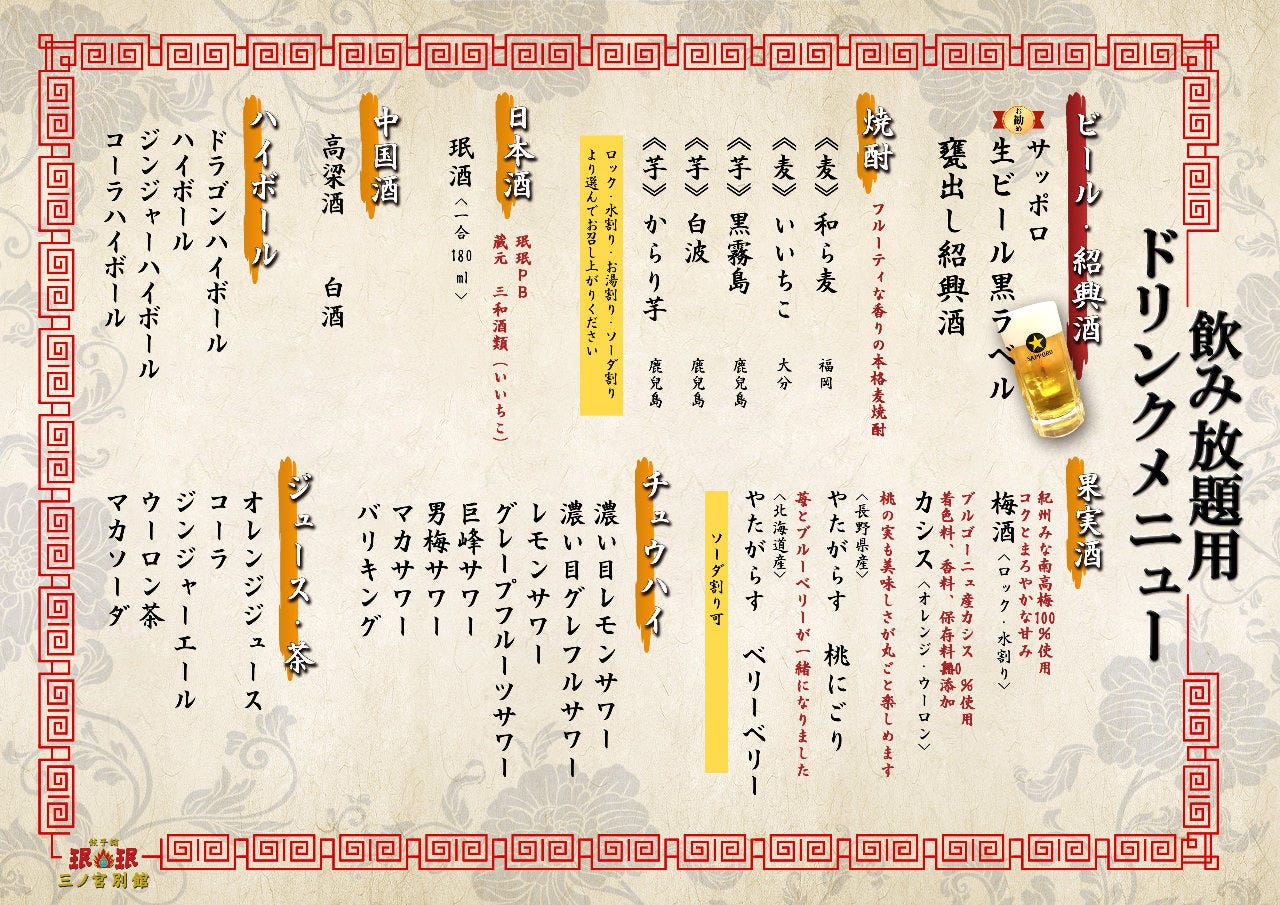 飲み放題用
ドリンクメニュー
ビール・紹興酒
お勧め
サッポロ
生ビール黒ラベル
SAPPORO
甕出し紹興酒
焼酎
フルーティな香りの本格麦焼酎
《麦》和ら麦 福岡
《麦》いいちこ 大分
《芋》黒霧島 鹿児島
《芋》白波 鹿児島
《芋》からり芋 鹿児島
ロック・水割り・お湯割り・ソーダ割り
より選んでお召し上がりください
日本酒
珉珉PB
蔵元 三和酒類(いいちこ)
珉酒〈一合180ml〉
中国酒
高梁酒 白酒
ハイボール
ドラゴンハイボール
ハイボール
ジンジャーハイボール
コーラハイボール
果実酒
紀州みな南高梅100%使用
コクとまろやかな甘み
梅酒〈ロック・水割り〉
ブルゴーニュ産カシス %使用
着色料、香料、保存料無添加
カシス〈オレンジ・ウーロン〉
桃の実も美味しさが丸ごと楽しめます
〈長野県産〉
やたがらす 桃にごり
苺とブルーベリーが一緒になりました
〈北海道産〉
やたがらす ベリーベリー
ソーダ割り可
チュウハイ
濃い目レモンサワー
濃い目グレフルサワー
レモンサワー
グレープフルーツサワー
巨峰サワー
男梅サワー
マカサワー
バリキング
ジュース・茶
オレンジジュース
コーラ
ジンジャーエール
ウーロン茶
マカソーダ
餃子館
珉珉
三ノ宮別館